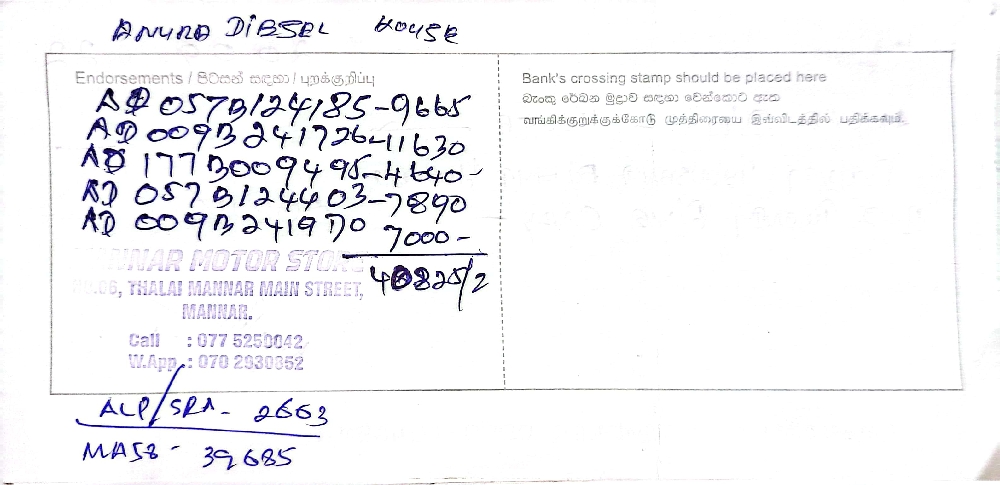 ANURA DIESEL HOUSE
Endorsements / පිටසන් සඳහා / புறக்குறிப்பு
AD 057B124185-9665
AD 009B241726-11630
AD 177B009495-4640-
AD 057B124403-7890
AD 009B241970 7000-
40825/2
MOTOR
THALAI MANNAR MAIN STREET,
MANNAR.
Call : 077 5250042
W.App : 070 2930352
ALP/SRA- 2663
MA58- 39685
Bank's crossing stamp should be placed here
බැංකු රේඛන මුද්‍රාව සඳහා වෙන්කොට ඇත
வங்கிக்குறுக்குக்கோடு முத்திரையை இவ்விடத்தில் பதிக்கவும்.